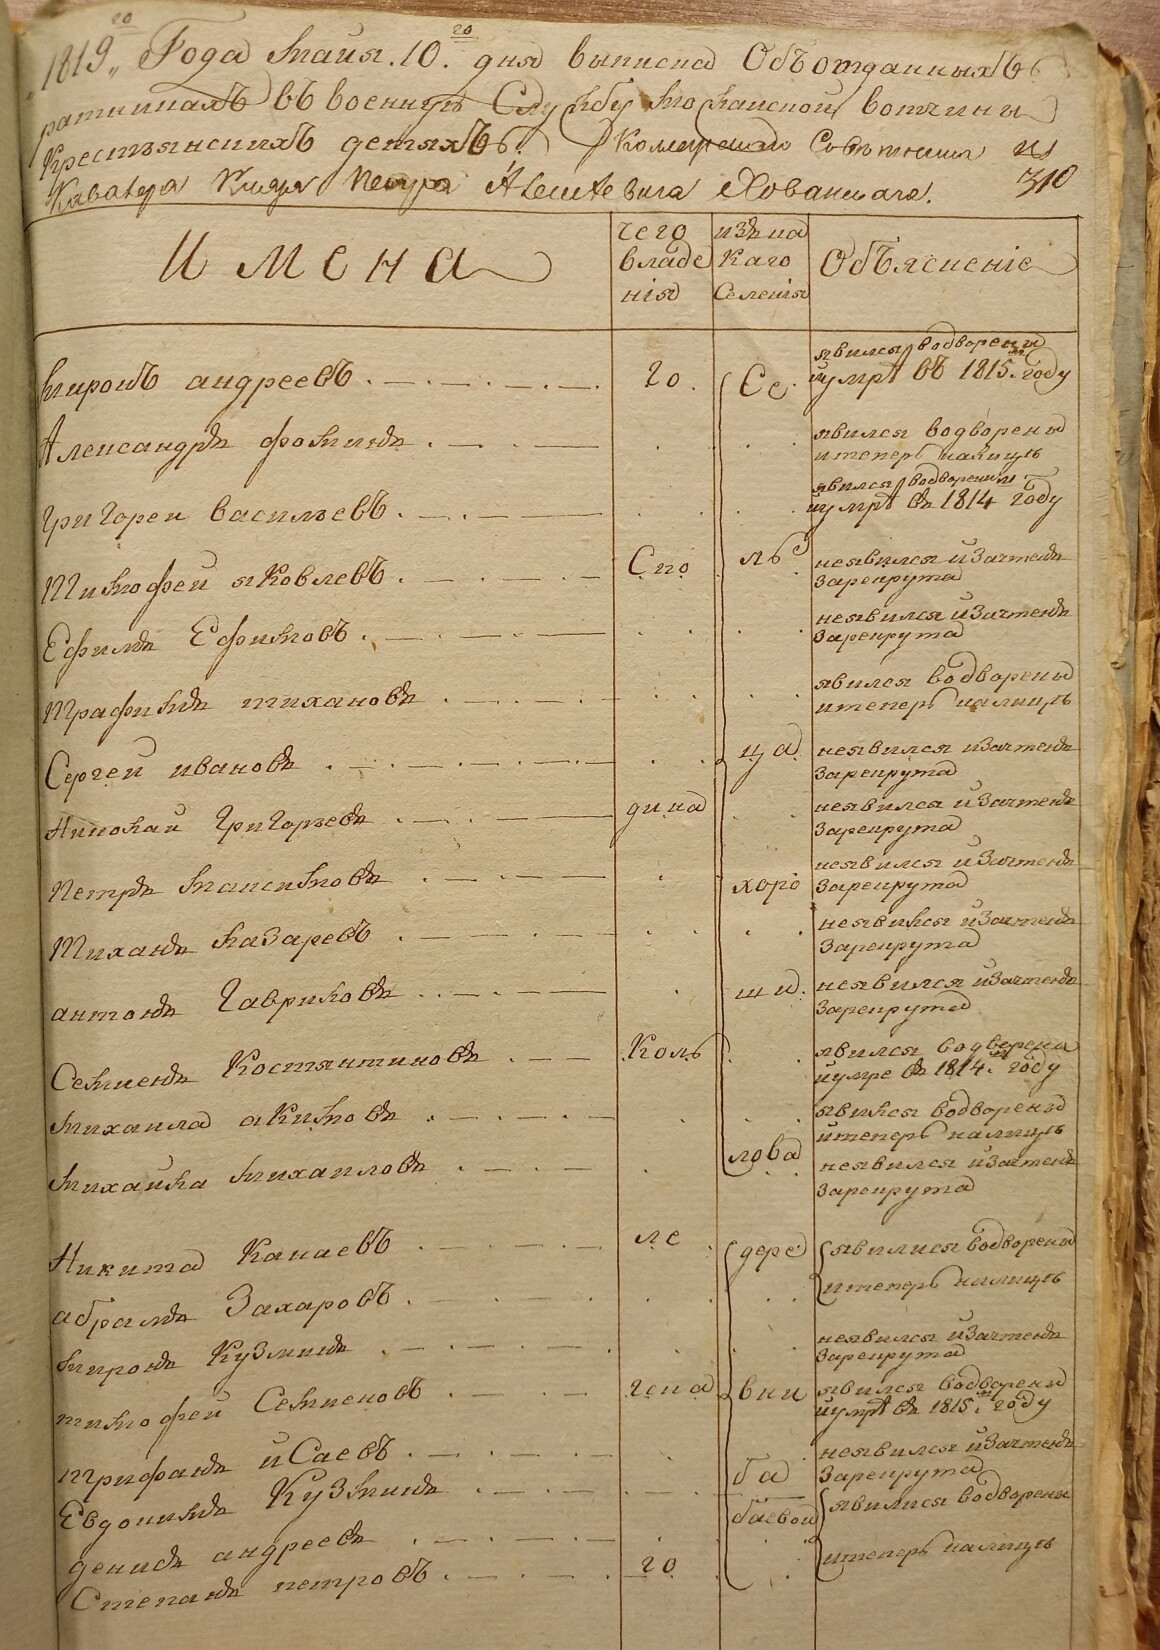 1819го Года Майя 10го дня выписка Объ отданныхъ
ратникахъ въ военную Службу Моршанской вотчины
Крестьянскихъ детяхъ. Комерческаго Советника и
Кавалера Князя Петра Алексеевича Хованскаго.
310
Имена
чего владе нія
изъ ка каго Селенія
Объясненіе
Миронъ андреевъ го Се явился водворенъ
и умрѣ въ 1815м году
Александръ фоминъ явился водворенъ
и теперь налицъ
Григореи васильевъ явился водворенъ
и умрѣ въ 1814 году
Тимофей яковлевъ Спо ль неявился и зачтенъ
за рекрута
Ефимъ Ефимовъ неявился и зачтенъ
за рекрута
Трафимъ тихановъ явился водворенъ
и теперь налицъ
Сергей ивановъ ца неявился и зачтенъ
за рекрута
Николай Григорьевъ дина неявился и зачтенъ
за рекрута
Петръ Максимовъ хоро неявился и зачтенъ
за рекрута
Тиханъ Лазаревъ неявился и зачтенъ
за рекрута
антонъ Гавриловъ ши неявился и зачтенъ
за рекрута
Семенъ Костянтиновъ Коль явился водверенъ
и умре въ 1814м году
Михаила акимовъ явился водворенъ
и теперь налицъ
Михайла Михаиловъ лова неявился и зачтенъ
за рекрута
Никита Канаевъ ле дере явилися водворена
абрамъ Захаровъ и теперь налицъ
Миронъ Кузминъ неявился и зачтенъ
за рекрута
тимофей Семеновъ гена вни явился водворенъ
и умрѣ въ 1815м году
трифанъ исаевъ ба неявился и зачтенъ
за рекрута
Евдокимъ Кузминъ баевои явилися водворены
денисъ андреевъ и теперь налицъ
Степанъ петровъ го